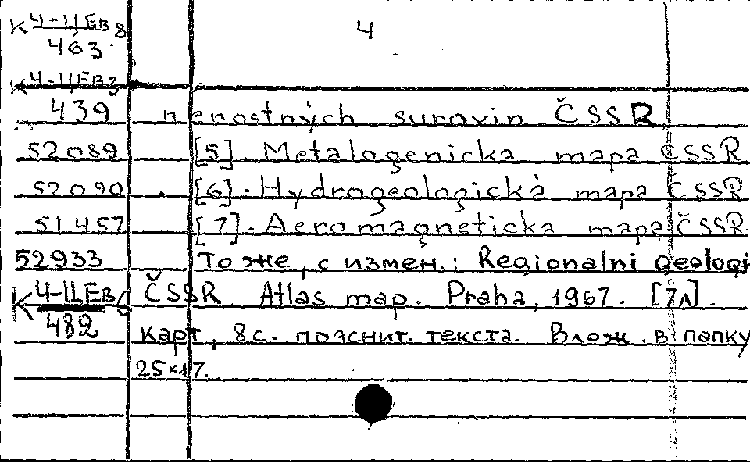 К 4-ЦЕВ 8
463
4
К 4-ЦЕВ3
439 nerostných surovin ČSSR
52089 [5]. Metalogenicka mapa ČSSR
52090 [6]. Hydrogeologická mapa ČSSR
51457 [7]. Aeromagneticka mapa ČSSR
52933 То же, с измен.: Regionalni geologi
К 4-ЦЕВ ČSSR. Atlas map. Praha, 1967. [7л].
482 карт, 8с. пояснит. текста. Влож. в папку
25×17.